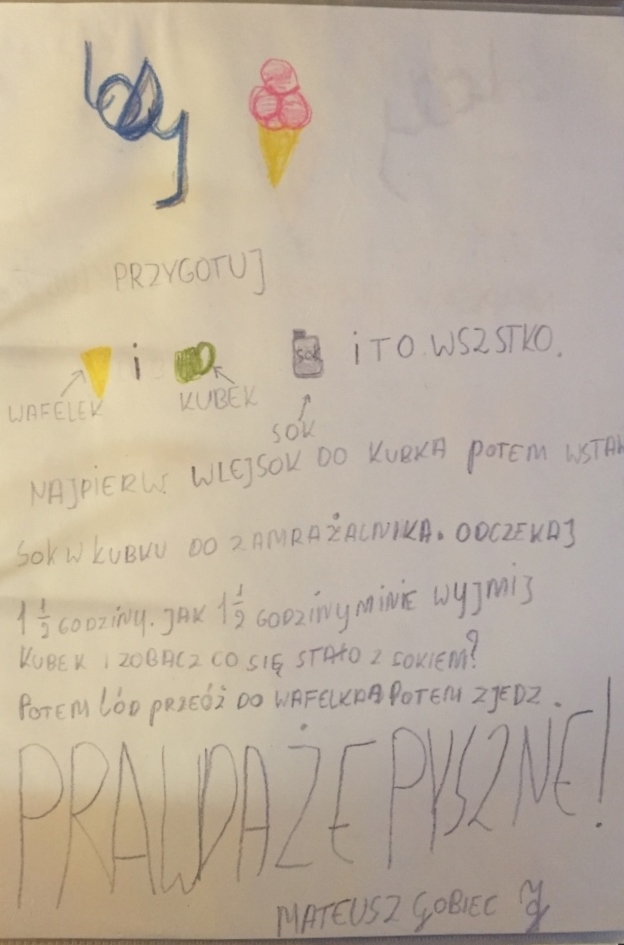 lody
PRZYGOTUJ
i SOK i TO WSZSTKO.
WAFELEK KUBEK
SOK
NAJPIERW WLEJ SOK DO KUBKA POTEM WSTAW
SOK W KUBKU DO ZAMRAŻALNIKA. ODCZEKAJ
1 1/2 GODZINY. JAK 1 1/2 GODZINY MINIE WYJMIJ
KUBEK I ZOBACZ CO SIĘ STAŁO Z SOKIEM?
POTEM LÓD PRZEÓŻ DO WAFELKA POTEM ZJEDZ.
PRAWDA ŻE PYSZNE!
MATEUSZ GOBIEC